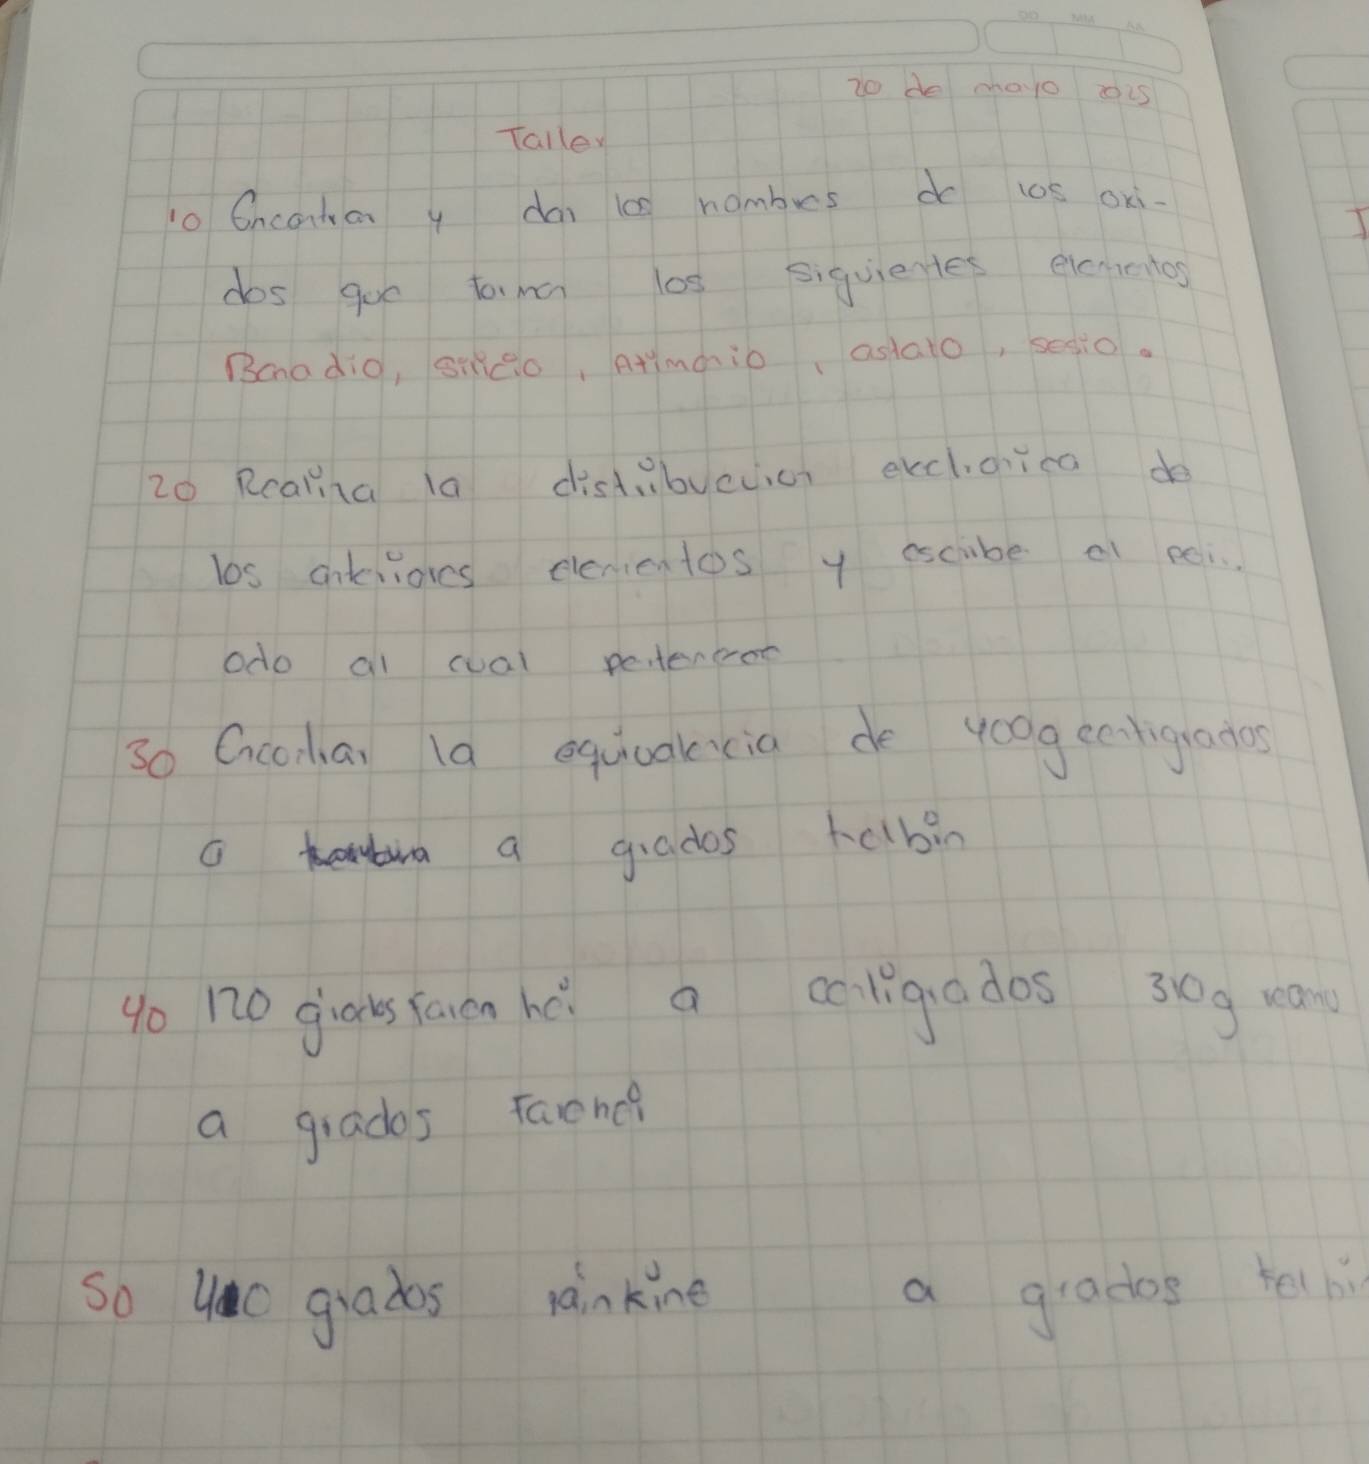 DD MM AA
20 de mayo 2025
Taller
1o Encontrar y dar los nombres de los oxi-
dos que forman los siguientes elementos
Banadio, silicio, Antimonio, astato, sesio.
2o Realiza la distribucuion exclonica de
los anteriores elementos y escribe el peri..
odo al cual pertenecen
3o Encontrar la equivalencia de 400g centigrados
a a grados kelbin
4o 120 grados faren hei a centigrados 310g reamu
a grados farenei
5o 400 grados rainkine a grados kelbi